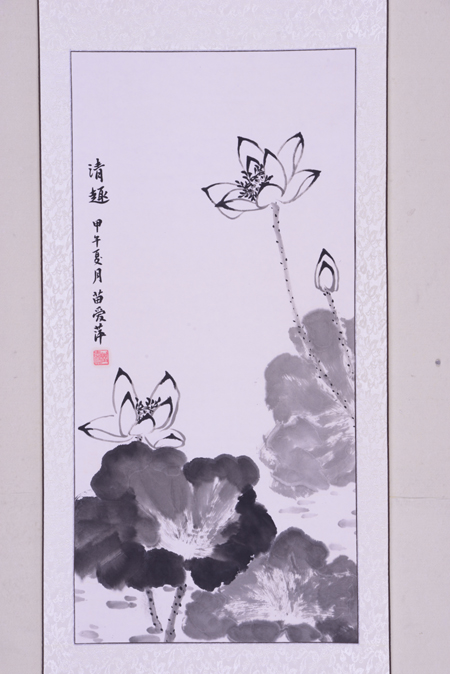 清趣
甲午夏月苗爱萍